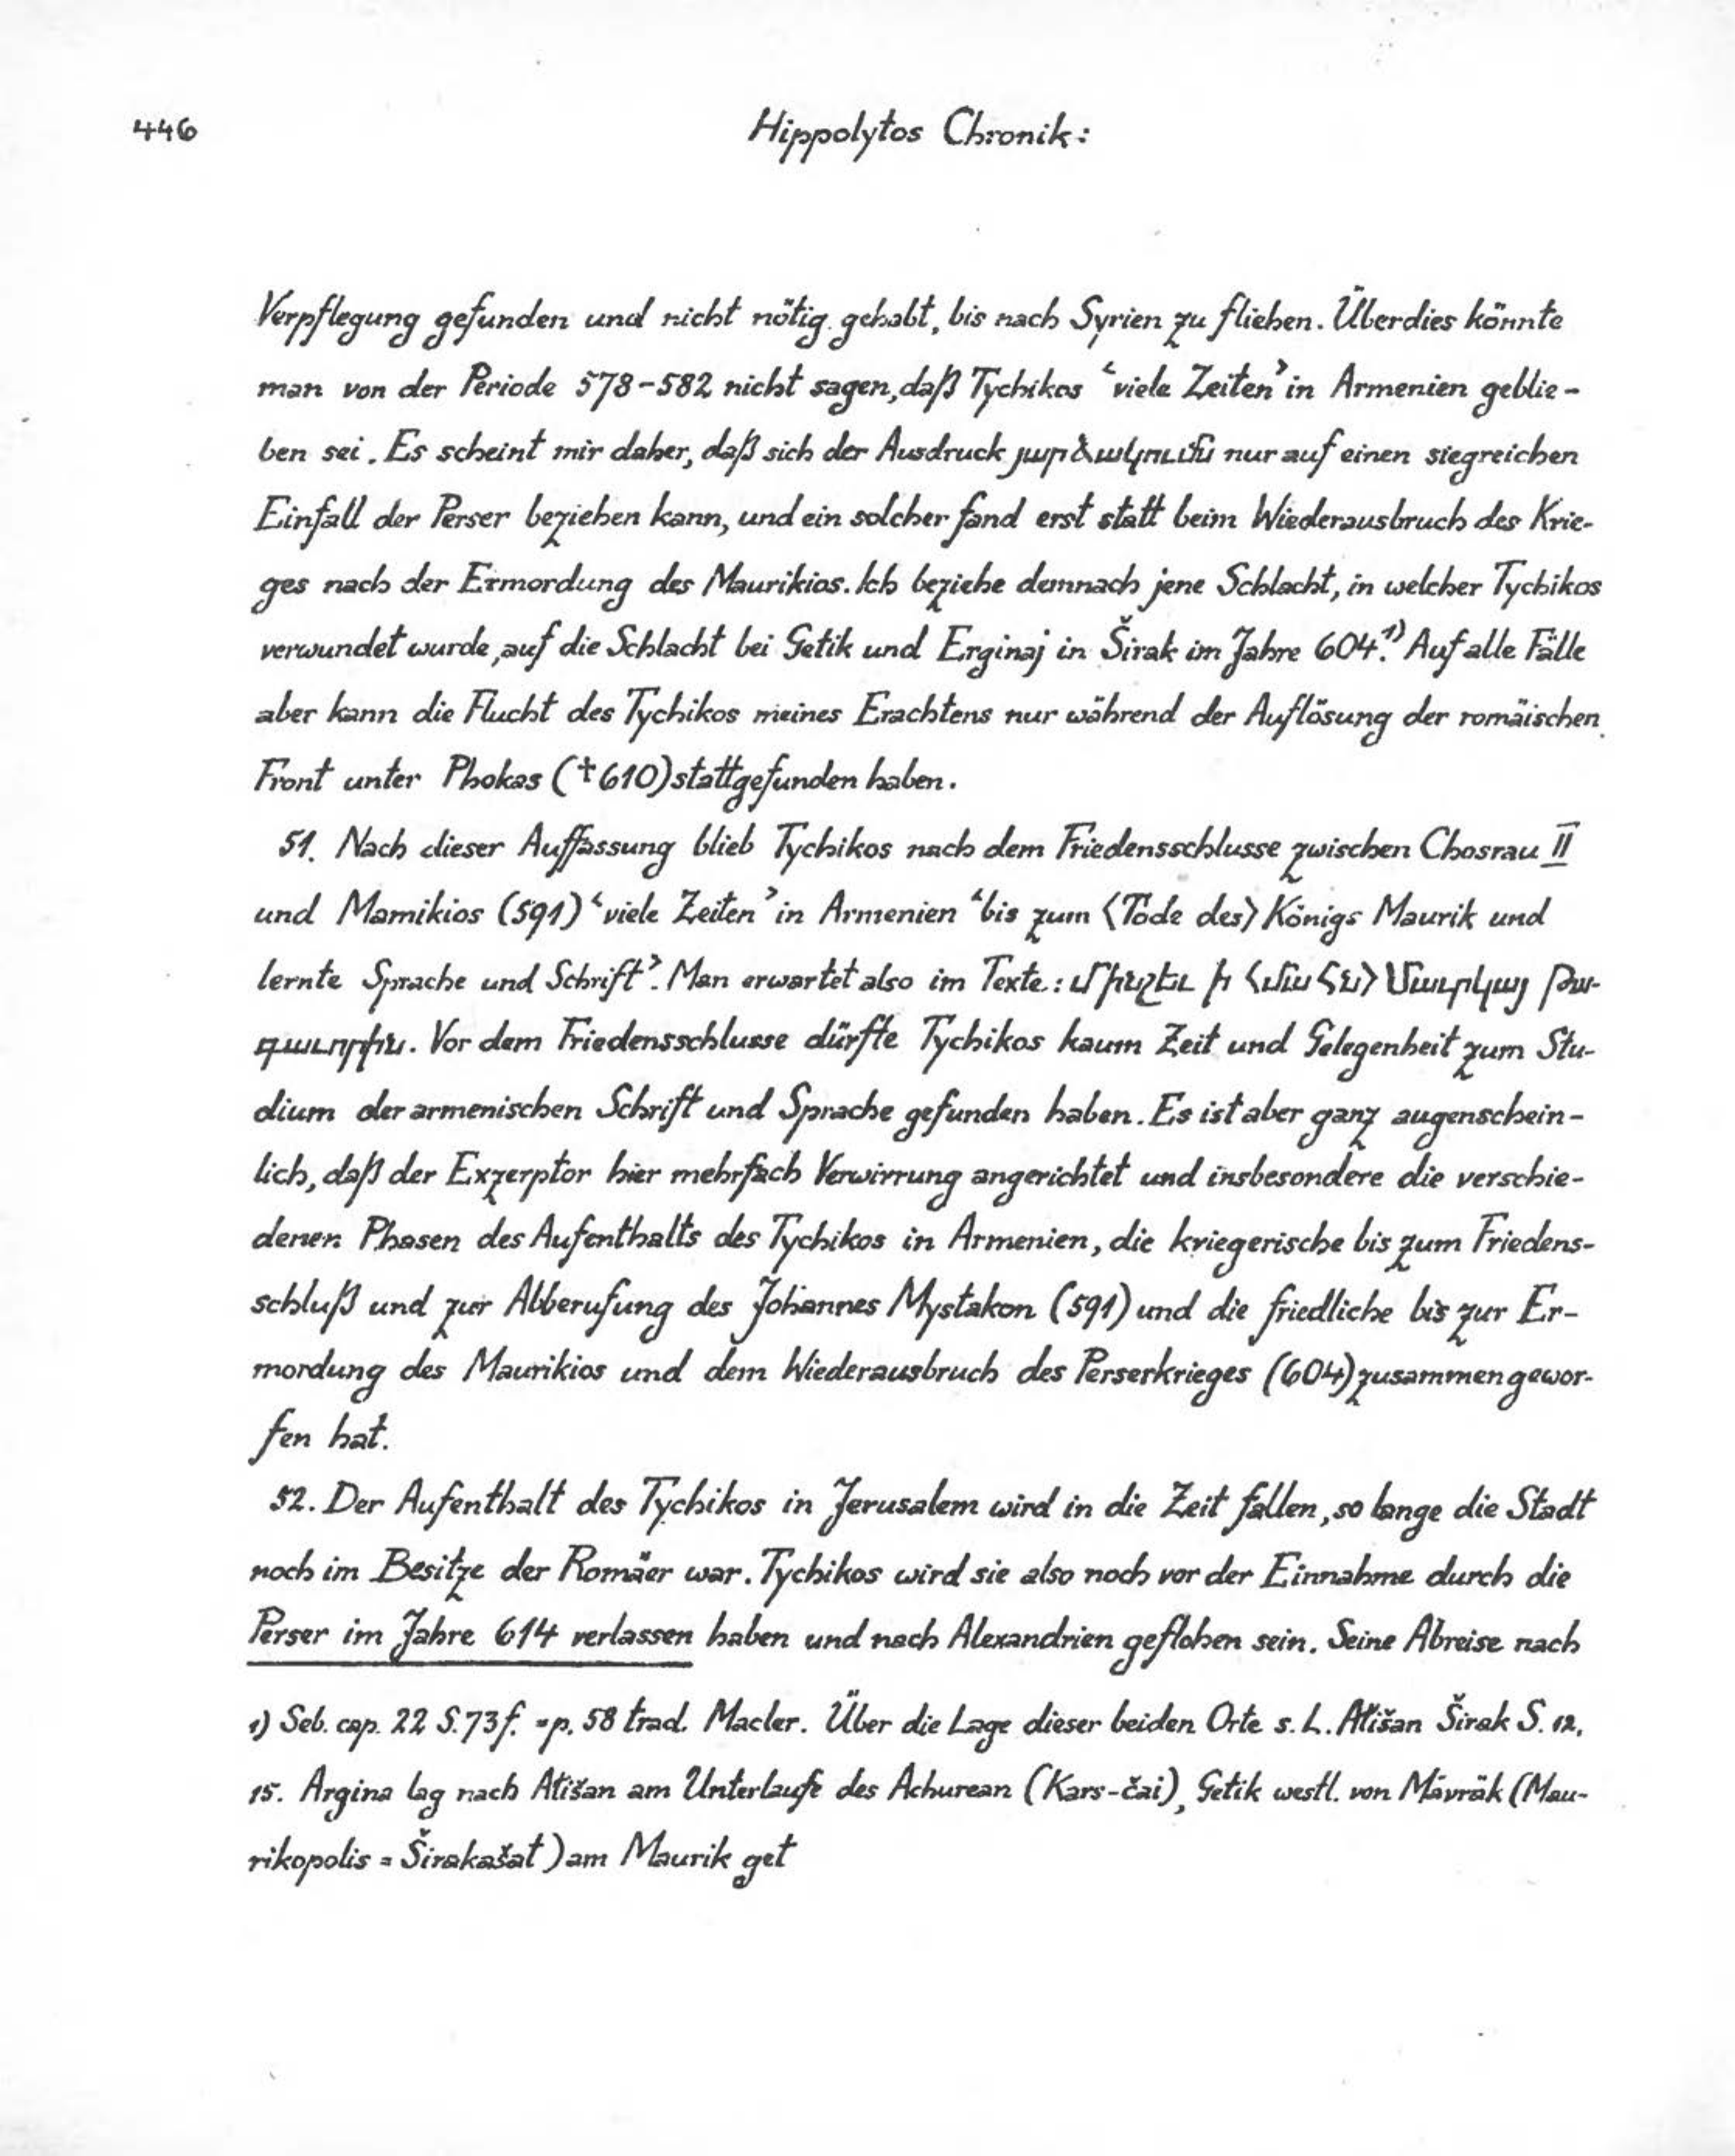 446
Hippolytos Chronik:
Verpflegung gefunden und nicht nötig gehabt, bis nach Syrien zu fliehen. Überdies könnte
man von der Periode 578-582 nicht sagen, daß Tychikos ‘viele Zeiten’ in Armenien geblie-
ben sei. Es scheint mir daher, daß sich der Ausdruck յարձակումն nur auf einen siegreichen
Einfall der Perser beziehen kann, und ein solcher fand erst statt beim Wiederausbruch des Krie-
ges nach der Ermordung des Maurikios. Ich beziehe demnach jene Schlacht, in welcher Tychikos
verwundet wurde, auf die Schlacht bei Getik und Erginaj in Širak im Jahre 604.¹⁾ Auf alle Fälle
aber kann die Flucht des Tychikos meines Erachtens nur während der Auflösung der romäischen
Front unter Phokas († 610) stattgefunden haben.
51. Nach dieser Auffassung blieb Tychikos nach dem Friedensschlusse zwischen Chosrau II
und Mamikios (591) ‘viele Zeiten’ in Armenien ‘bis zum ⟨Tode des⟩ Königs Maurik und
lernte Sprache und Schrift’. Man erwartet also im Texte: մինչեւ ի ⟨մահն⟩ Մաւրկայ թա-
գաւորին. Vor dem Friedensschlusse dürfte Tychikos kaum Zeit und Gelegenheit zum Stu-
dium der armenischen Schrift und Sprache gefunden haben. Es ist aber ganz augenschein-
lich, daß der Exzerptor hier mehrfach Verwirrung angerichtet und insbesondere die verschie-
denen Phasen des Aufenthalts des Tychikos in Armenien, die kriegerische bis zum Friedens-
schluß und zur Abberufung des Johannes Mystakon (591) und die friedliche bis zur Er-
mordung des Maurikios und dem Wiederausbruch des Perserkrieges (604) zusammengewor-
fen hat.
52. Der Aufenthalt des Tychikos in Jerusalem wird in die Zeit fallen, so lange die Stadt
noch im Besitze der Romäer war. Tychikos wird sie also noch vor der Einnahme durch die
Perser im Jahre 614 verlassen haben und nach Alexandrien geflohen sein. Seine Abreise nach
1) Seb. cap. 22 S. 73 f. = p. 58 trad. Macler. Über die Lage dieser beiden Orte s. L. Ališan Širak S. 12,
15. Argina lag nach Ališan am Unterlaufe des Achurean (Kars-čai), Getik westl. von Mävräk (Mau-
rikopolis = Širakašat) am Maurik get